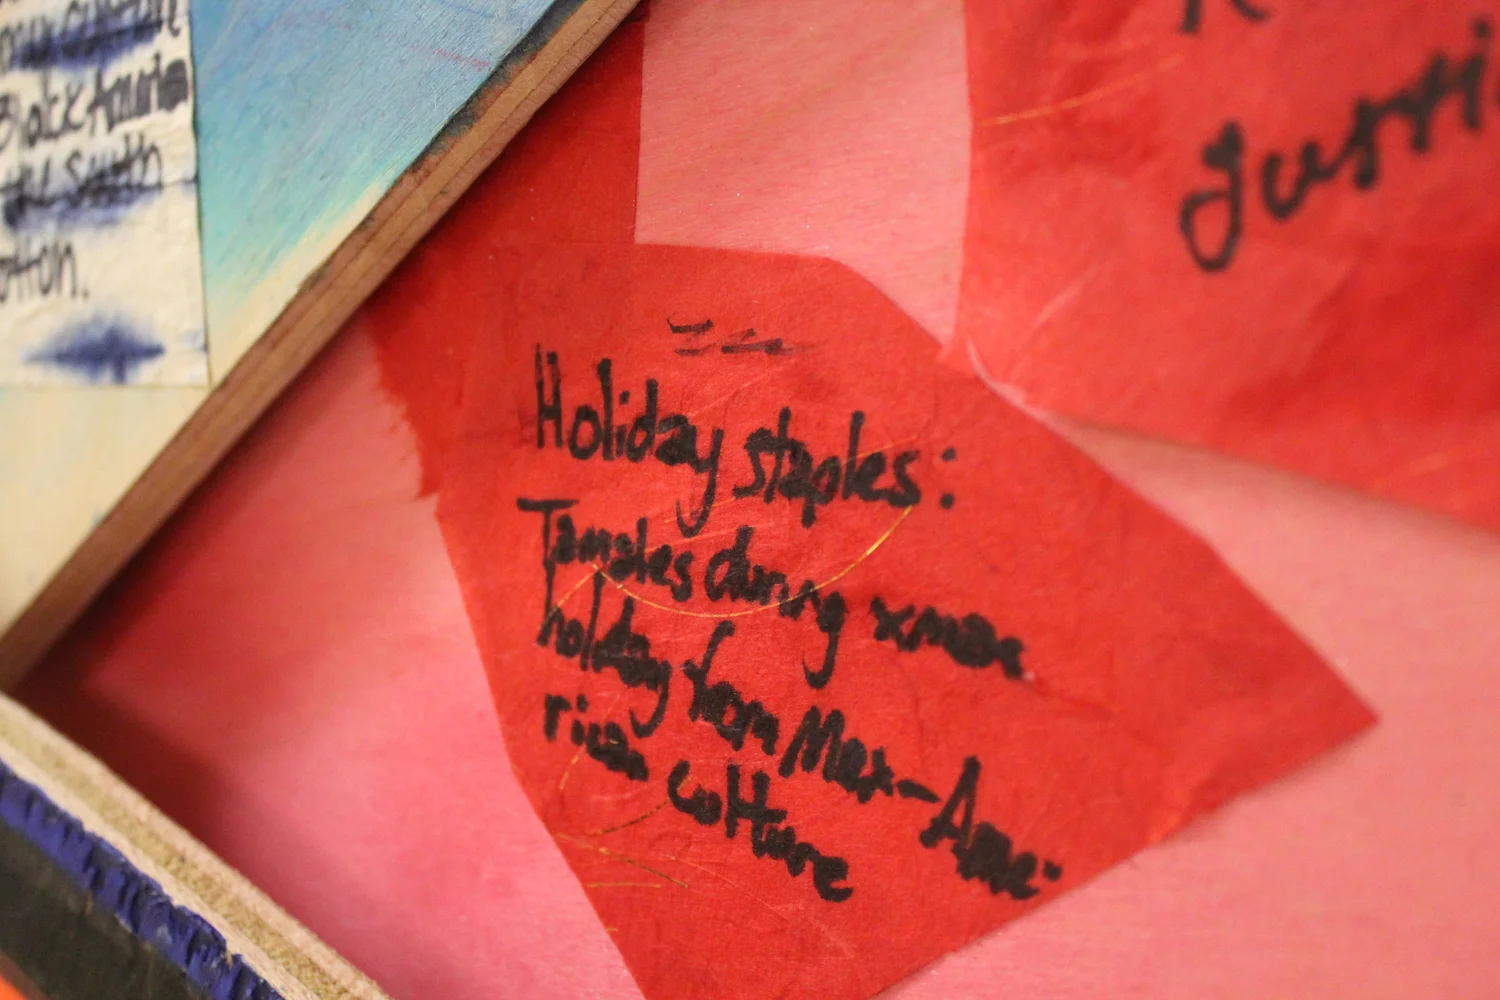 Black Ameri
the South
otton.
Justi
Holiday staples:
Tamales during xmas
holiday from Mex-Ame-
rican culture